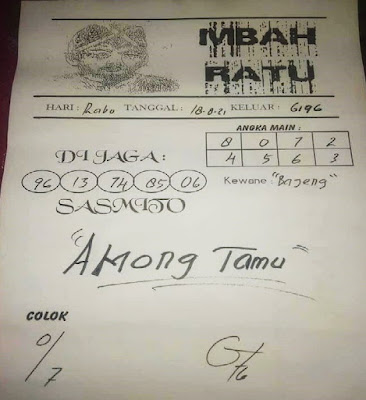 MBAH
RATU
HARI : Rabu TANGGAL : 18-8-21 KELUAR : 6196
ANGKA MAIN :
8 0 7 2
4 5 6 3
DI JAGA :
96 13 74 85 06
Kewane : "Bajeng"
SASMITO
"AMONG TAMU"
COLOK
0/7
G/6